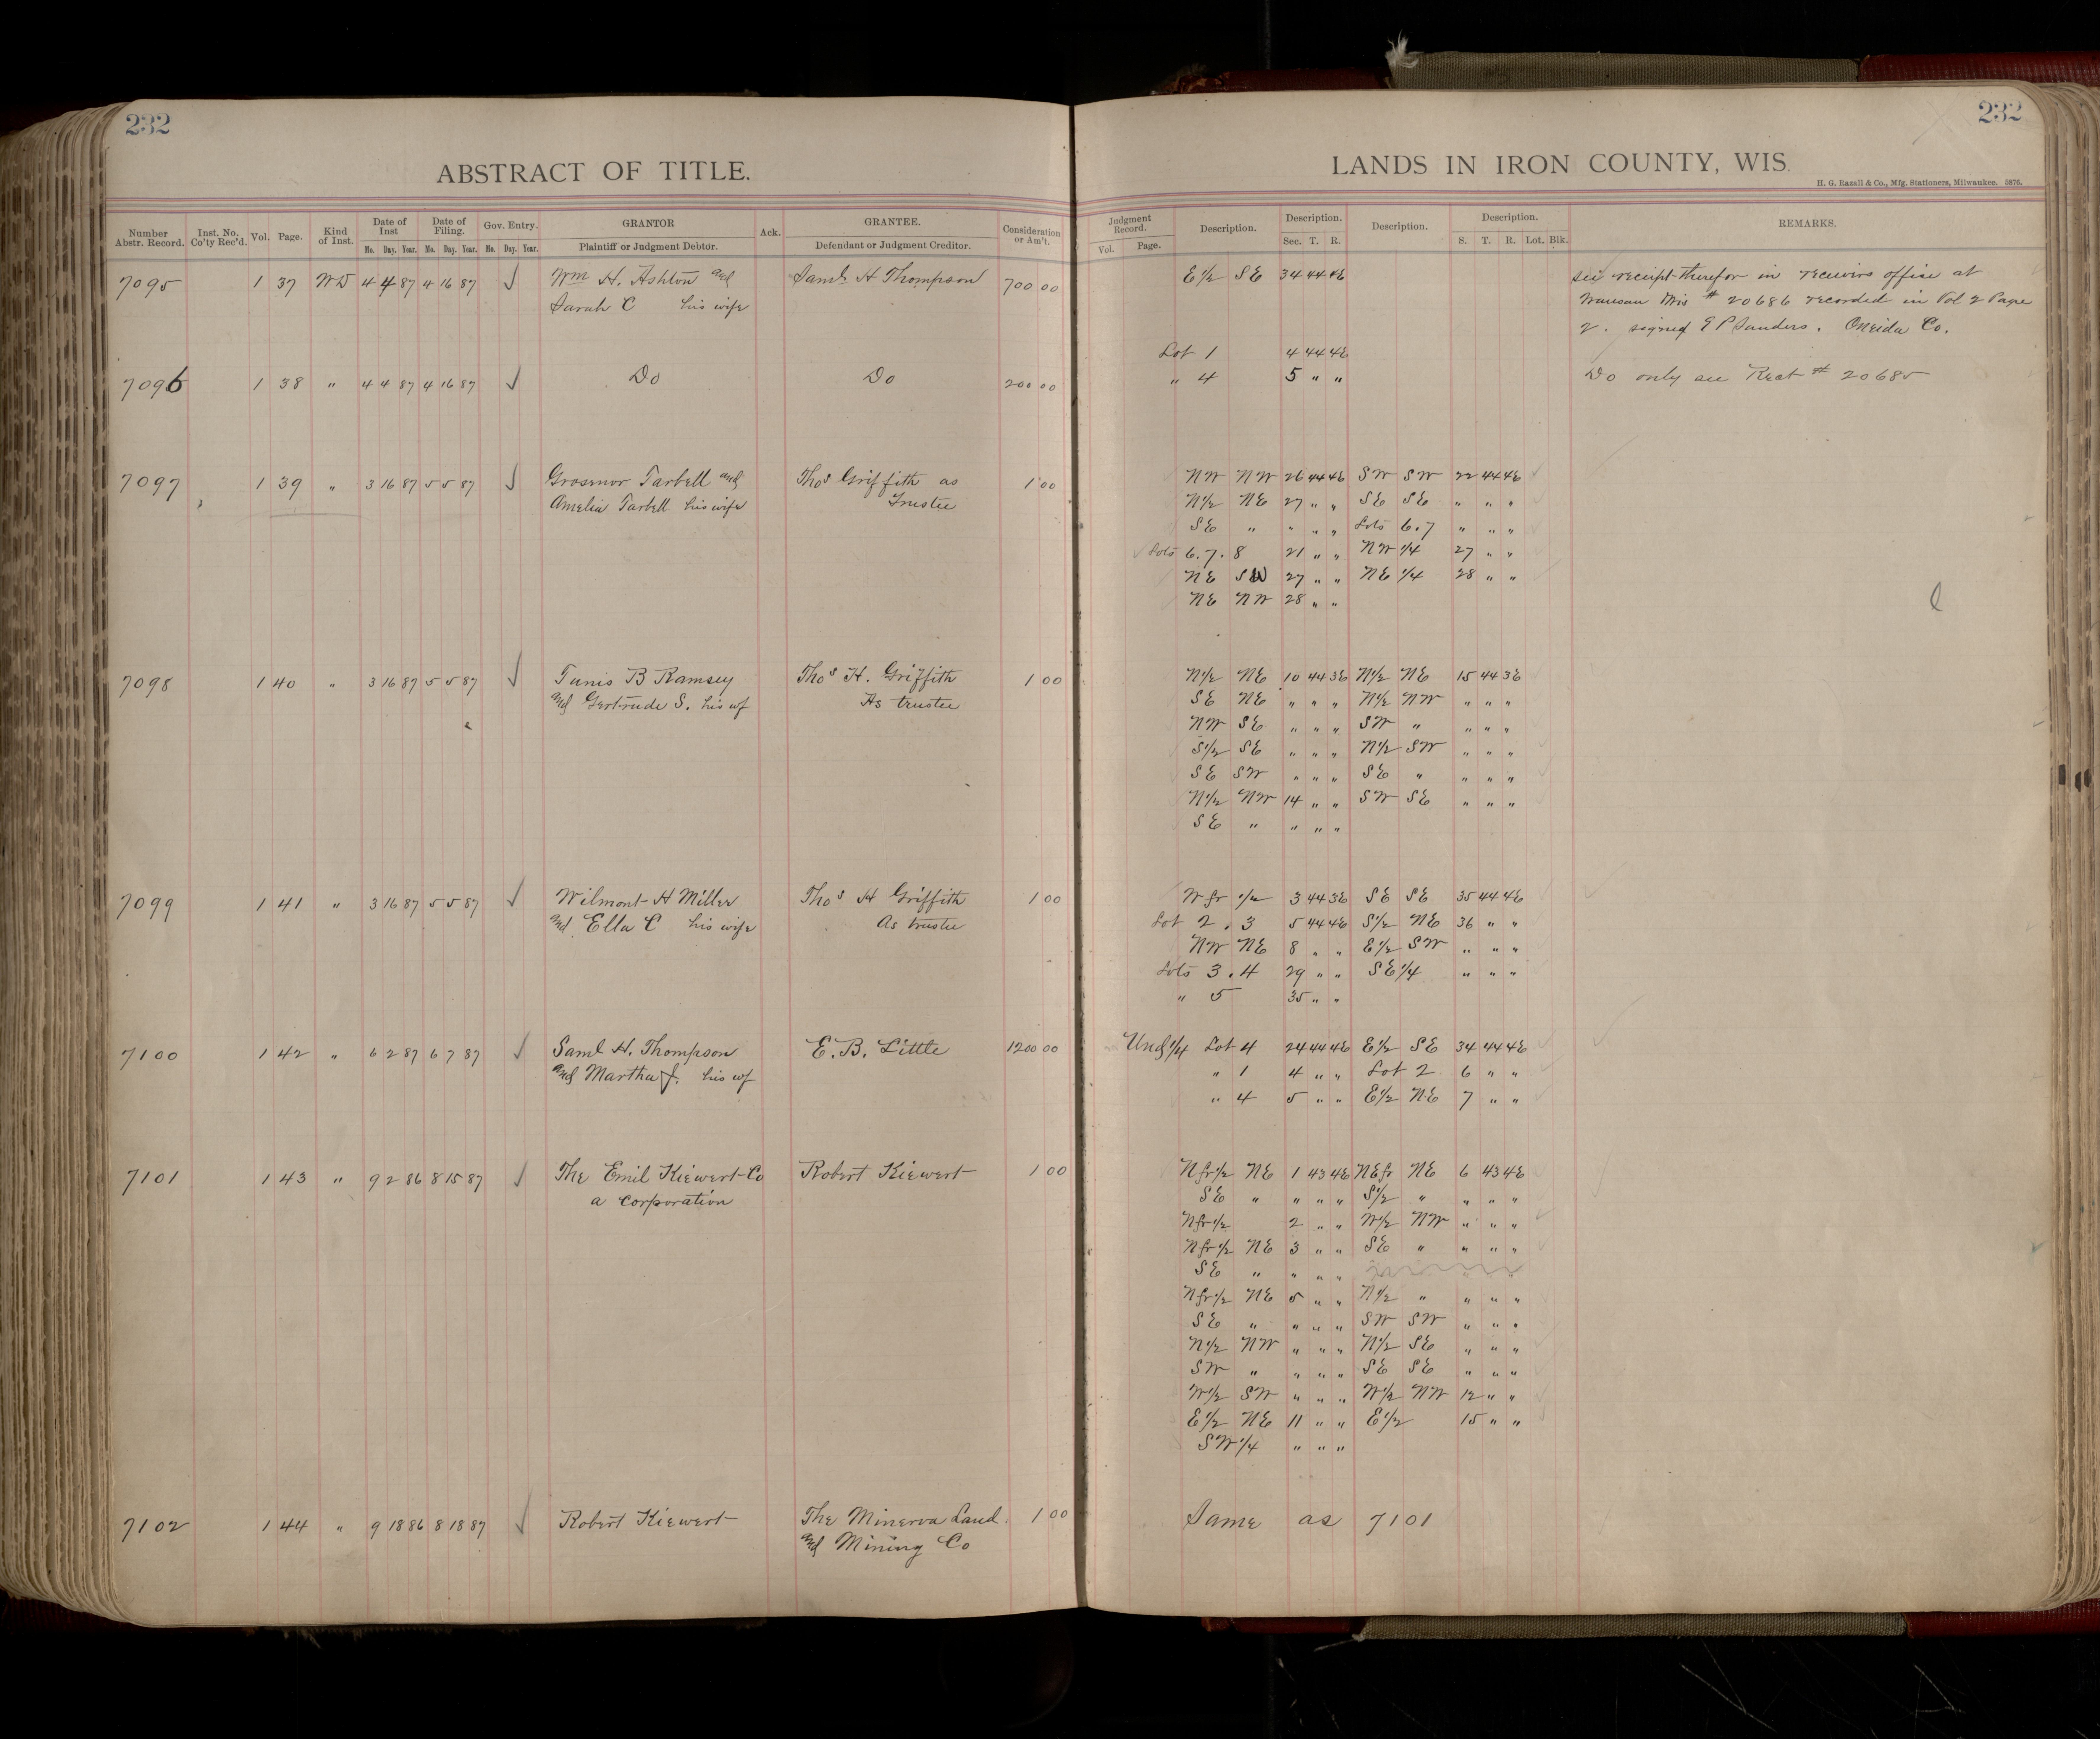 232
232
ABSTRACT OF TITLE.
LANDS IN IRON COUNTY, WIS.
H. G. Razall & Co., Mfg. Stationers, Milwaukee. 5876.
Number Abstr. Record. Inst. No. Co'ty Rec'd. Vol. Page. Kind of Inst. Date of Inst Mo. Day. Year. Date of Filing. Mo. Day. Year. Gov. Entry. Mo. Day. Year. GRANTOR Plaintiff or Judgment Debtor. Ack. GRANTEE. Defendant or Judgment Creditor. Consideration or Am't.
Judgment Record. Vol. Page. Description. Description. Sec. T. R. Description. Description. S. T. R. Lot. Blk. REMARKS.
7095 1 37 WD 4 4 87 4 16 87 ✓ Wm H. Ashton and Saml H Thompson 700 00 E½ SE 34 44 4E see receipt therefor in receivers office at
Sarah C his wife Wausau Wis # 20686 recorded in Vol 2 Page
2. signed E P Sanders. Oneida Co.
Lot 1 4 44 4E
7096 1 38 " 4 4 87 4 16 87 ✓ Do Do 200 00 " 4 5 " " Do only see Rect # 20685
7097 1 39 " 3 16 87 5 5 87 ✓ Grosvenor Tarbell and Thos Griffith as 1 00 NW NW 26 44 4E SW SW 22 44 4E
Amelia Tarbell his wife Trustee N½ NE 27 " " SE SE " " "
SE " " " " Lots 6.7 " " "
Lots 6.7.8 21 " " NW ¼ 27 " "
NE SW 27 " " NE ¼ 28 " "
NE NW 28 " "
7098 1 40 " 3 16 87 5 5 87 ✓ Tunis B Ramsey Thos H. Griffith 1 00 N½ NE 10 44 3E N½ NE 15 44 3E
and Gertrude S. his wf As trustee SE NE " " " N½ NW " " "
NW SE " " " SW " " " "
S½ SE " " " N½ SW " " "
SE SW " " " SE " " " "
N½ NW 14 " " SW SE " " "
SE " " " "
7099 1 41 " 3 16 87 5 5 87 ✓ Wilmont H Miller Thos H Griffith 1 00 W fr ½ 3 44 3E SE SE 35 44 4E
and Ella C his wife As trustee Lot 2.3 5 44 4E S½ NE 36 " "
NW NE 8 " " E½ SW " " "
Lots 3.4 29 " " SE¼ " " "
" 5 35 " "
7100 1 42 " 6 2 87 6 7 87 ✓ Saml H. Thompson E. B. Little 1200 00 Und ¼ Lot 4 24 44 4E E½ SE 34 44 4E
and Martha J. his wf " 1 4 " " Lot 2 6 " "
" 4 5 " " E½ NE 7 " "
7101 1 43 " 9 2 86 8 15 87 ✓ The Emil Kiewert Co Robert Kiewert 1 00 N fr ½ NE 1 43 4E NE fr NE 6 43 4E
a corporation SE " " " " S½ " " " "
N fr ½ 2 " " W½ NW " " "
N fr ½ NE 3 " " SE " " " "
SE " " " "
N fr ½ NE 5 " " N½ " " " "
SE " " " " SW SW " " "
N½ NW " " " N½ SE " " "
SW " " " " SE SE " " "
W½ SW " " " W½ NW 12 " "
E½ NE 11 " " E½ 15 " "
SW¼ " " "
7102 1 44 " 9 18 86 8 18 87 ✓ Robert Kiewert The Minerva Land 1 00 Same as 7101
and Mining Co